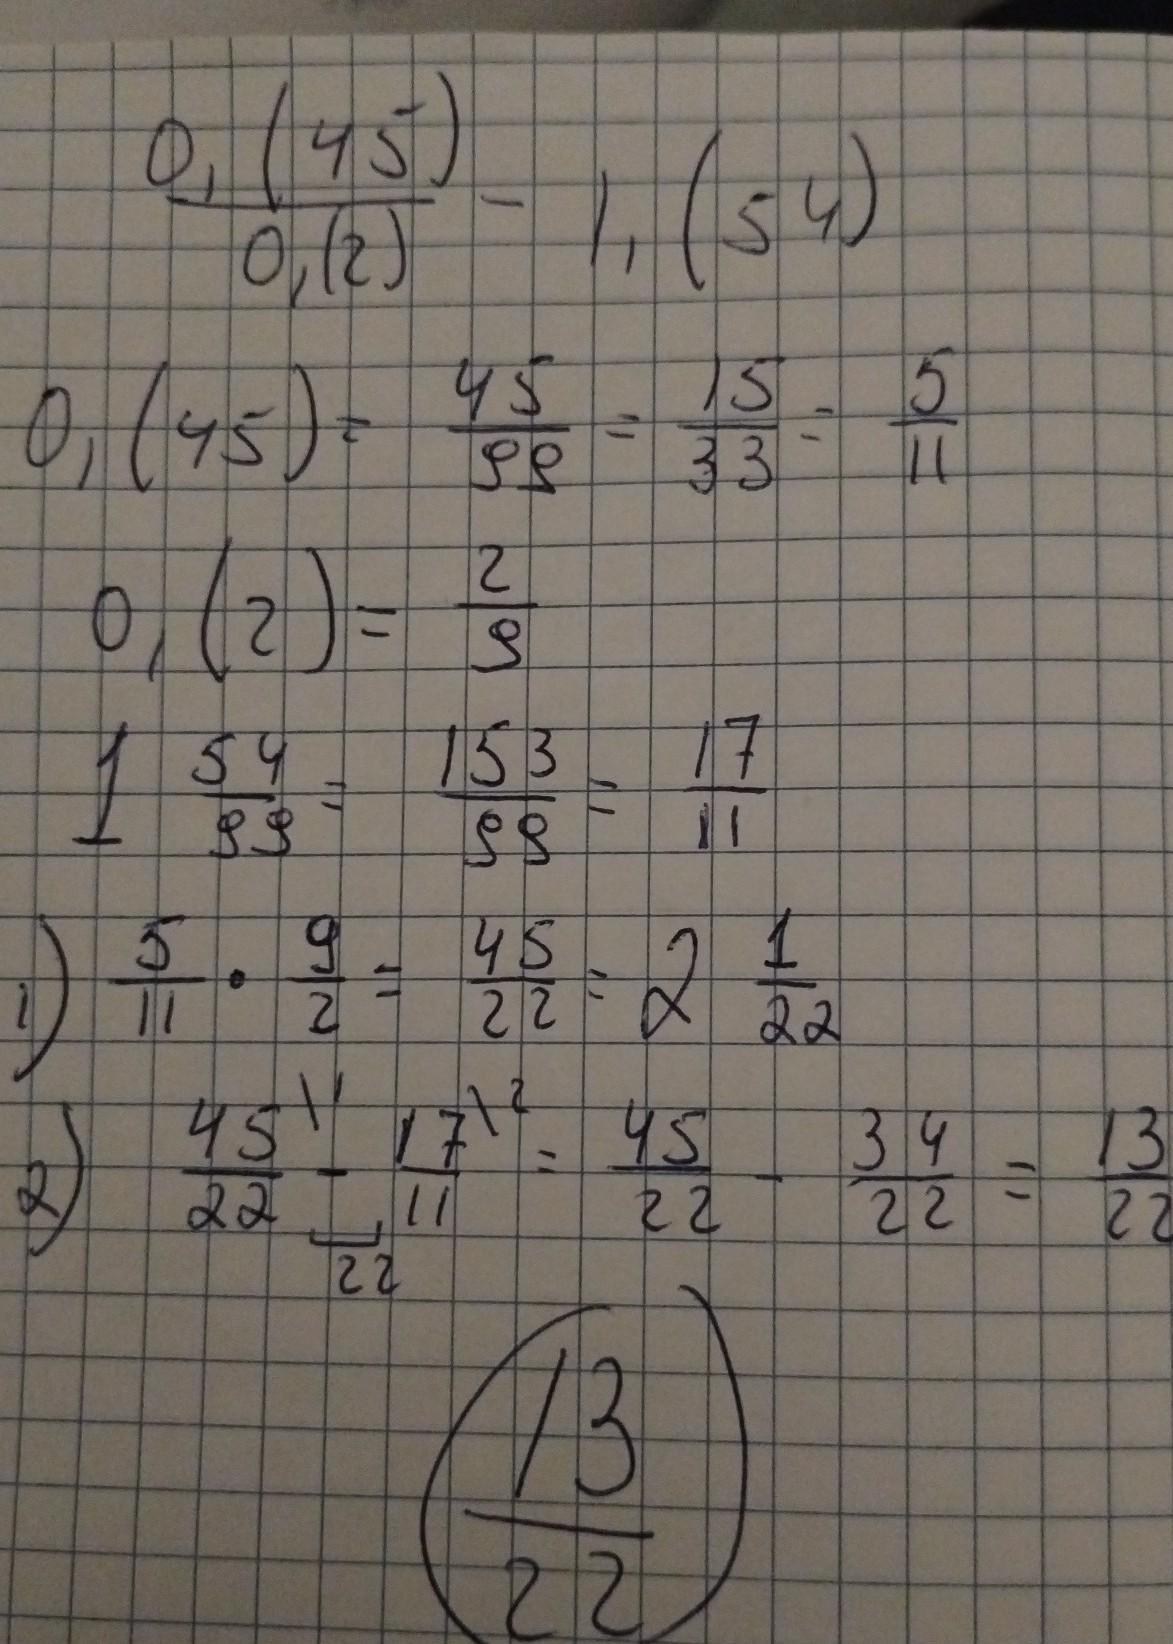 0,(45)/0,(2) - 1,(54)
0,(45) = 45/99 = 15/33 = 5/11
0,(2) = 2/9
1 54/99 = 153/99 = 17/11
1) 5/11 · 9/2 = 45/22 = 2 1/22
2) 45/22 \1 - 17/11 \2 = 45/22 - 34/22 = 13/22
22
13/22